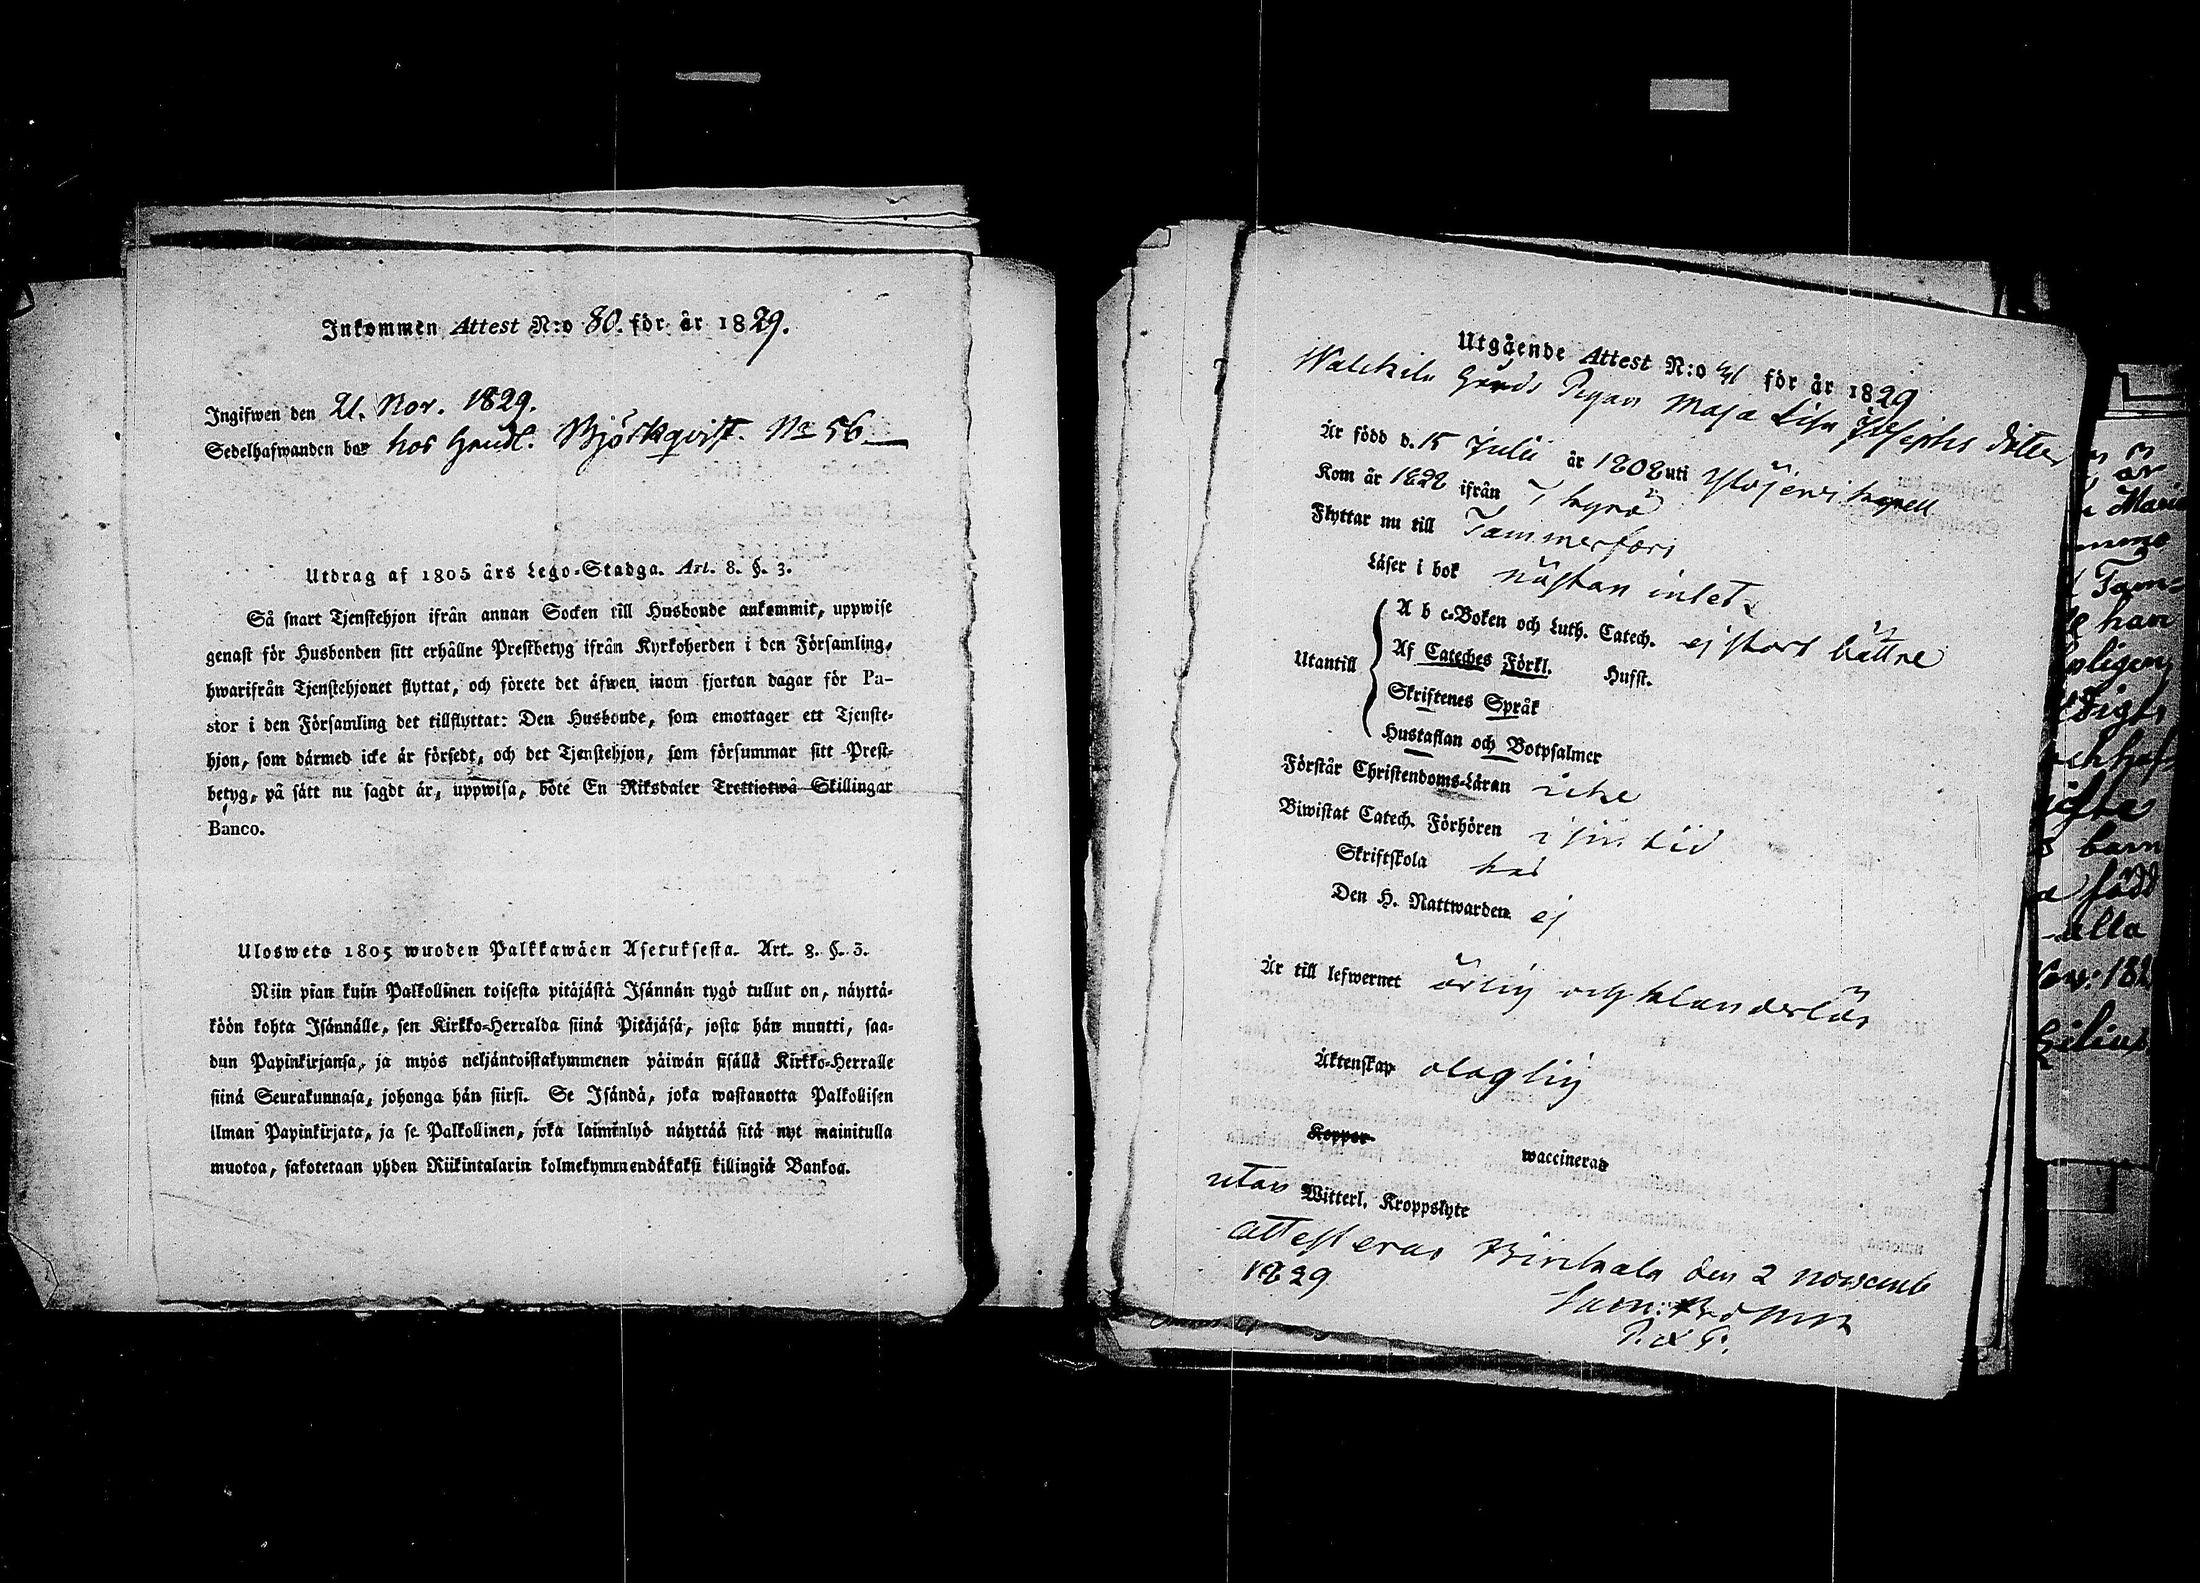 Inkommen Attest N:o 80. för år 1829.
Ingifwen den 21. Nov. 1829.
Sedelhafwanden bor hos Handl. Björkqvist. No 56
Utdrag af 1805 års Lego-Stadga. Art. 8. §. 3.
Så snart Tjenstehjon ifrån annan Socken till Husbonde ankommit, uppwise
genast för Husbonden sitt erhållne Prestbetyg ifrån Kyrkoherden i den Församling,
hwarifrån Tjenstehjonet flyttat, och förete det äfwen inom fjorton dagar för Pa-
stor i den Församling det tillflyttat: Den Husbonde, som emottager ett Tjenste-
hjon, som därmed icke är försedt, och det Tjenstehjon, som försummar sitt Prest-
betyg, på sätt nu sagdt är, uppwisa, böte En Riksdaler Trettiotwå Skillingar
Banco.
Ulosweto 1805 wuoden Palkkawäen Asetuksesta. Art. 8. §. 3.
Niin pian kuin Palkollinen toisesta pitäjästä Isännän tygö tullut on, näyttä-
köön kohta Isännälle, sen Kirkko-Herralda siinä Pitäjäsä, josta hän muutti, saa-
dun Papinkirjansa, ja myös neljäntoistakymmenen päiwän sisällä Kirkko-Herralle
siinä Seurakunnasa, johonga hän siirsi. Se Isändä, joka wastanotta Palkollisen
ilman Papinkirjata, ja se Palkollinen, joka laiminlyö näyttää sitä nyt mainitulla
muotoa, sakotetaan yhden Riikintalarin kolmekymmendäkaksi killingiä Bankoa.
Utgående Attest N:o 41 för år 1829
Walckila Gårds Pigan Maja Lisa Josephs dotter
Är född d. 15 Julii år 1808 uti Ylöjervi kapell
Kom år 1828 ifrån T kyrö
Flyttar nu till Tammerfors
Läser i bok nästan intet
A b c-Boken och Luth. Catech. ej stort bättre
Utantill
Af Cateches Förkl. Husst.
Skriftenes Språk
Hustaflan och Botpsalmer
Förstår Christendoms-Läran icke
Biwistat Catech. Förhören i sin tid
Skriftskola har
Den H. Nattwarden ej
Är till lefwernet ärlig och klanderlös
Äktenskap oläglig
Koppor waccinerad
utan Witterl. Kroppslyte
attesteras Birckala den 2 novemb
1829
P. & P.
är
Maria
Tam=
han
ligen
barn
född
alla
Nov: 182